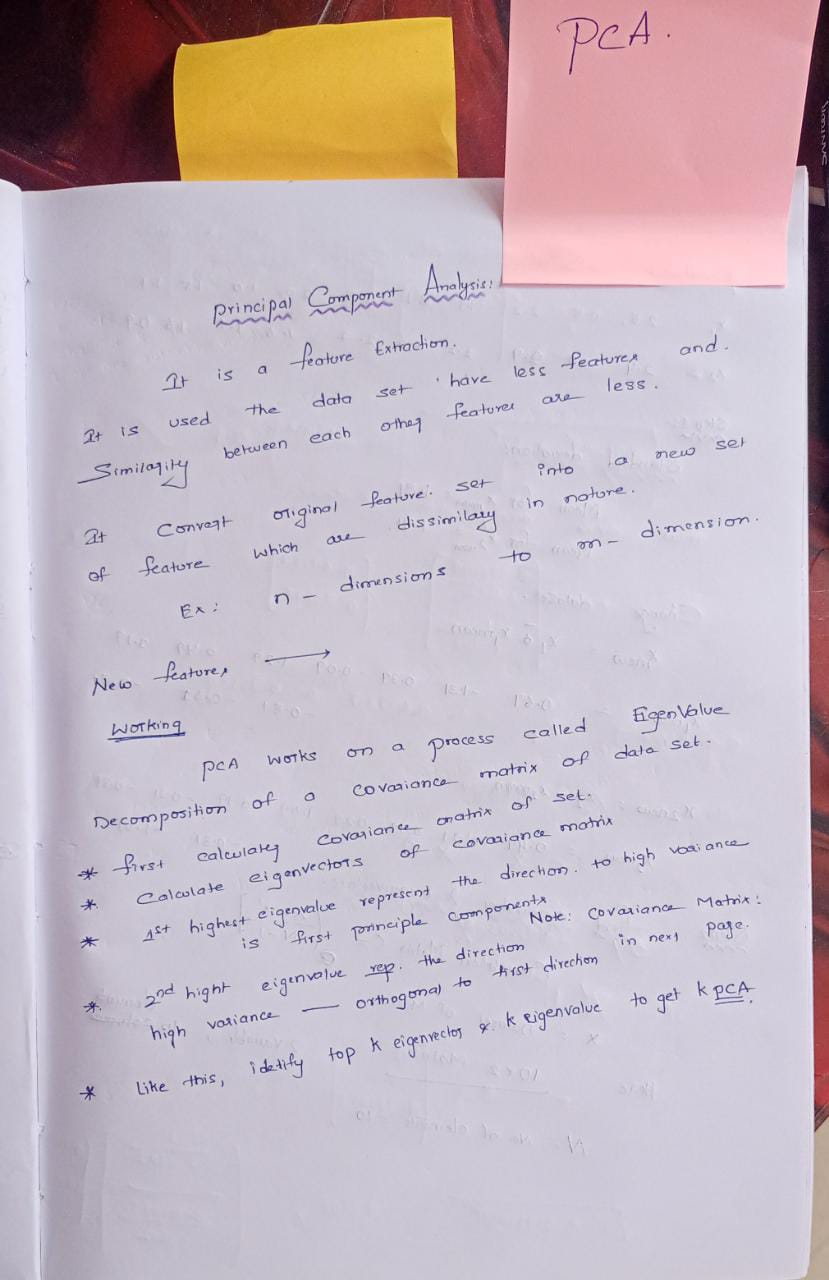 PCA.
Principal Component Analysis:
It is a feature Extraction.
It is used the data set have less features and.
Similarity between each other features are less.
It Convert original feature. set into a new set
of feature which are dissimilary in nature.
Ex: n - dimensions to m - dimension.
New features →
Working
PCA works on a process called EigenValue
Decomposition of a Covariance matrix of data set.
* first calculatey Covariance matrix of set.
* Calculate eigenvectors of covariance matrix
* 1st highest eigenvalue represent the direction. to high variance
is first principle components
Note: Covariance Matrix:
in next page.
* 2nd hight eigenvalue rep. the direction
high variance — orthogonal to first direction
* Like this, idetify top k eigenvector & k eigenvalue to get k PCA.